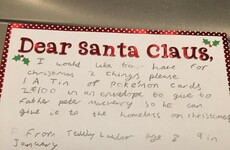 Dear Santa Claus,
I would like to have for
christmas 2 things please
1 A Tin of Pokémon cards
2 €100 in an envelope to give to
Father peter so he can
give it to the homeless on christmas
From Teddy age 8 9 in
January